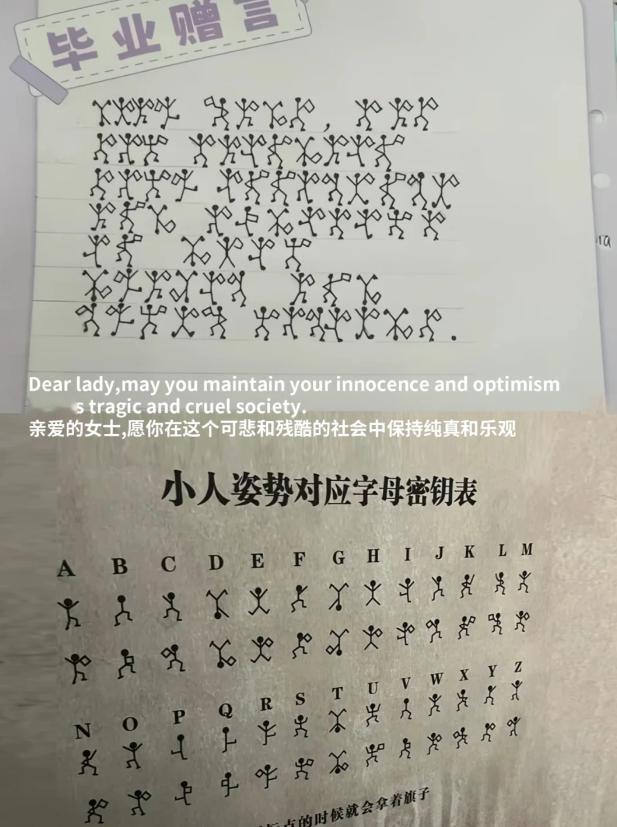 毕业赠言
Dear lady,may you maintain your innocence and optimism
s tragic and cruel society.
亲爱的女士,愿你在这个可悲和残酷的社会中保持纯真和乐观
小人姿势对应字母密钥表
A B C D E F G H I J K L M
N O P Q R S T U V W X Y Z
点的时候就会拿着旗子